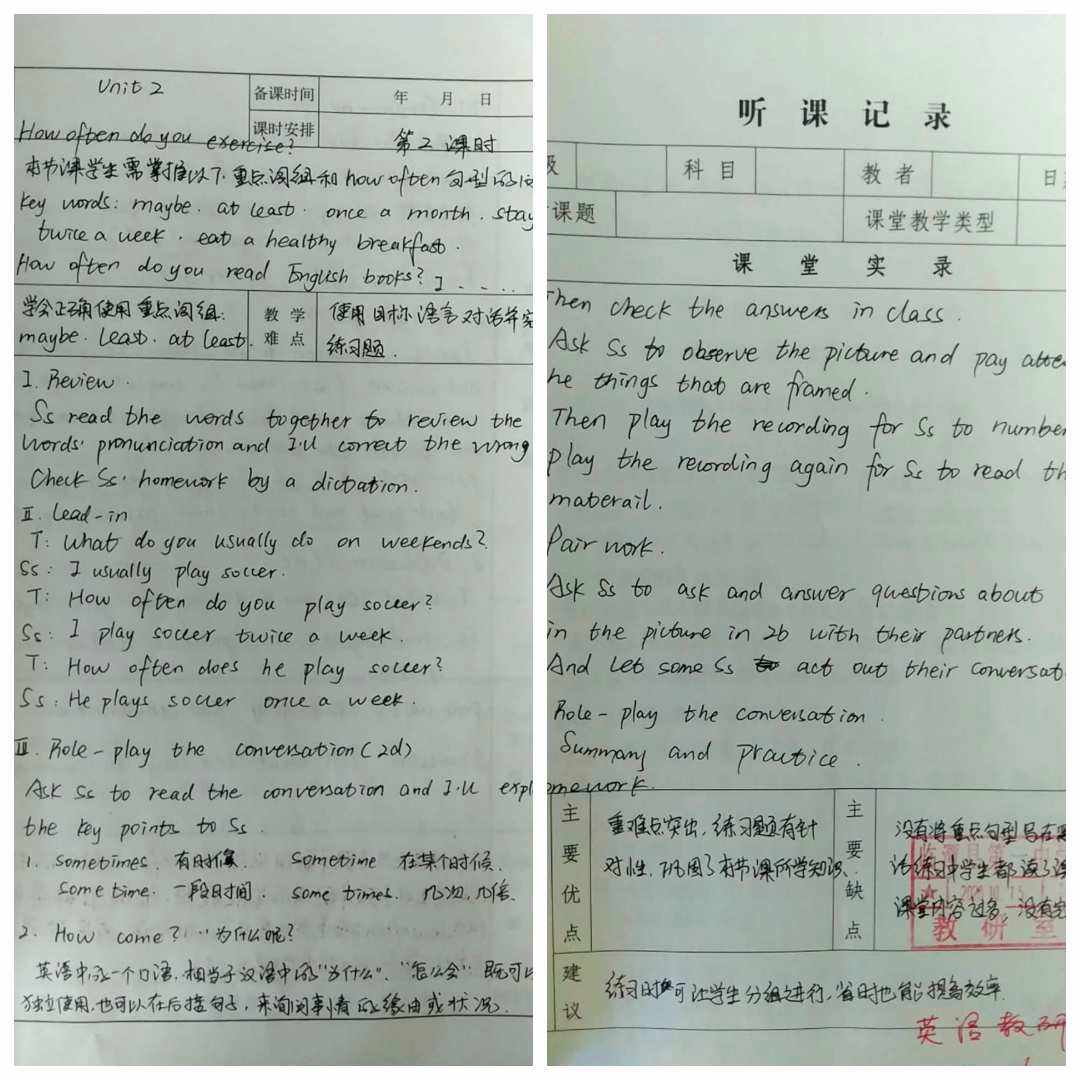 Unit 2
备课时间
年 月 日
How often do you exercise?
课时安排
第2课时
本节课学生需掌握以下重点词组和how often句型的
Key words: maybe. at least. once a month. stay
twice a week. eat a healthy breakfast.
How often do you read English books? I .....
学会正确使用重点词组:
maybe. least. at least.
教学
难点
使用目标语言对话并完
练习题.
I. Review.
Ss read the words together to review the
words' pronunciation and I'll correct the wrong
Check Ss' homework by a dictation.
II. Lead-in
T: What do you usually do on weekends?
Ss: I usually play soccer.
T: How often do you play soccer?
Ss: I play soccer twice a week.
T: How often does he play soccer?
Ss: He plays soccer once a week.
III. Role-play the conversation (2d)
Ask Ss to read the conversation and I'll expl
the key points to Ss.
1. sometimes 有时候 sometime 在某个时候.
some time. 一段时间. some times. 几次,几倍.
2. How come? "为什么呢?
英语中的一个口语,相当于汉语中的"为什么"、"怎么会" 既可以
独立使用,也可以在后接句子,来询问事情的缘由或状况.
听课记录
级
科目
教者
日
课题
课堂教学类型
课堂实录
Then check the answers in class.
Ask Ss to observe the picture and pay atte
he things that are framed.
Then play the recording for Ss to number
Play the recording again for Ss to read th
materail.
Pair work.
Ask Ss to ask and answer questions about
in the picture in 2b with their partners.
And let some Ss act out their conversat
Role-play the conversation.
Summary and practice.
omework.
主要优点
重难点突出,练习题有针
对性,巩固了本节课所学知识.
主要缺点
没有将重点句型写在黑
练习中学生都读了
课堂内容过多,没有完
教研室
建议
练习时可让学生分组进行,省时也能提高效率.
英语教研